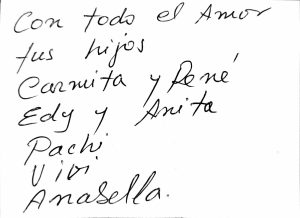 Con todo el Amor
tus hijos
Carmita y René
Edy y Anita
Pachi
Vivi
Anabella.